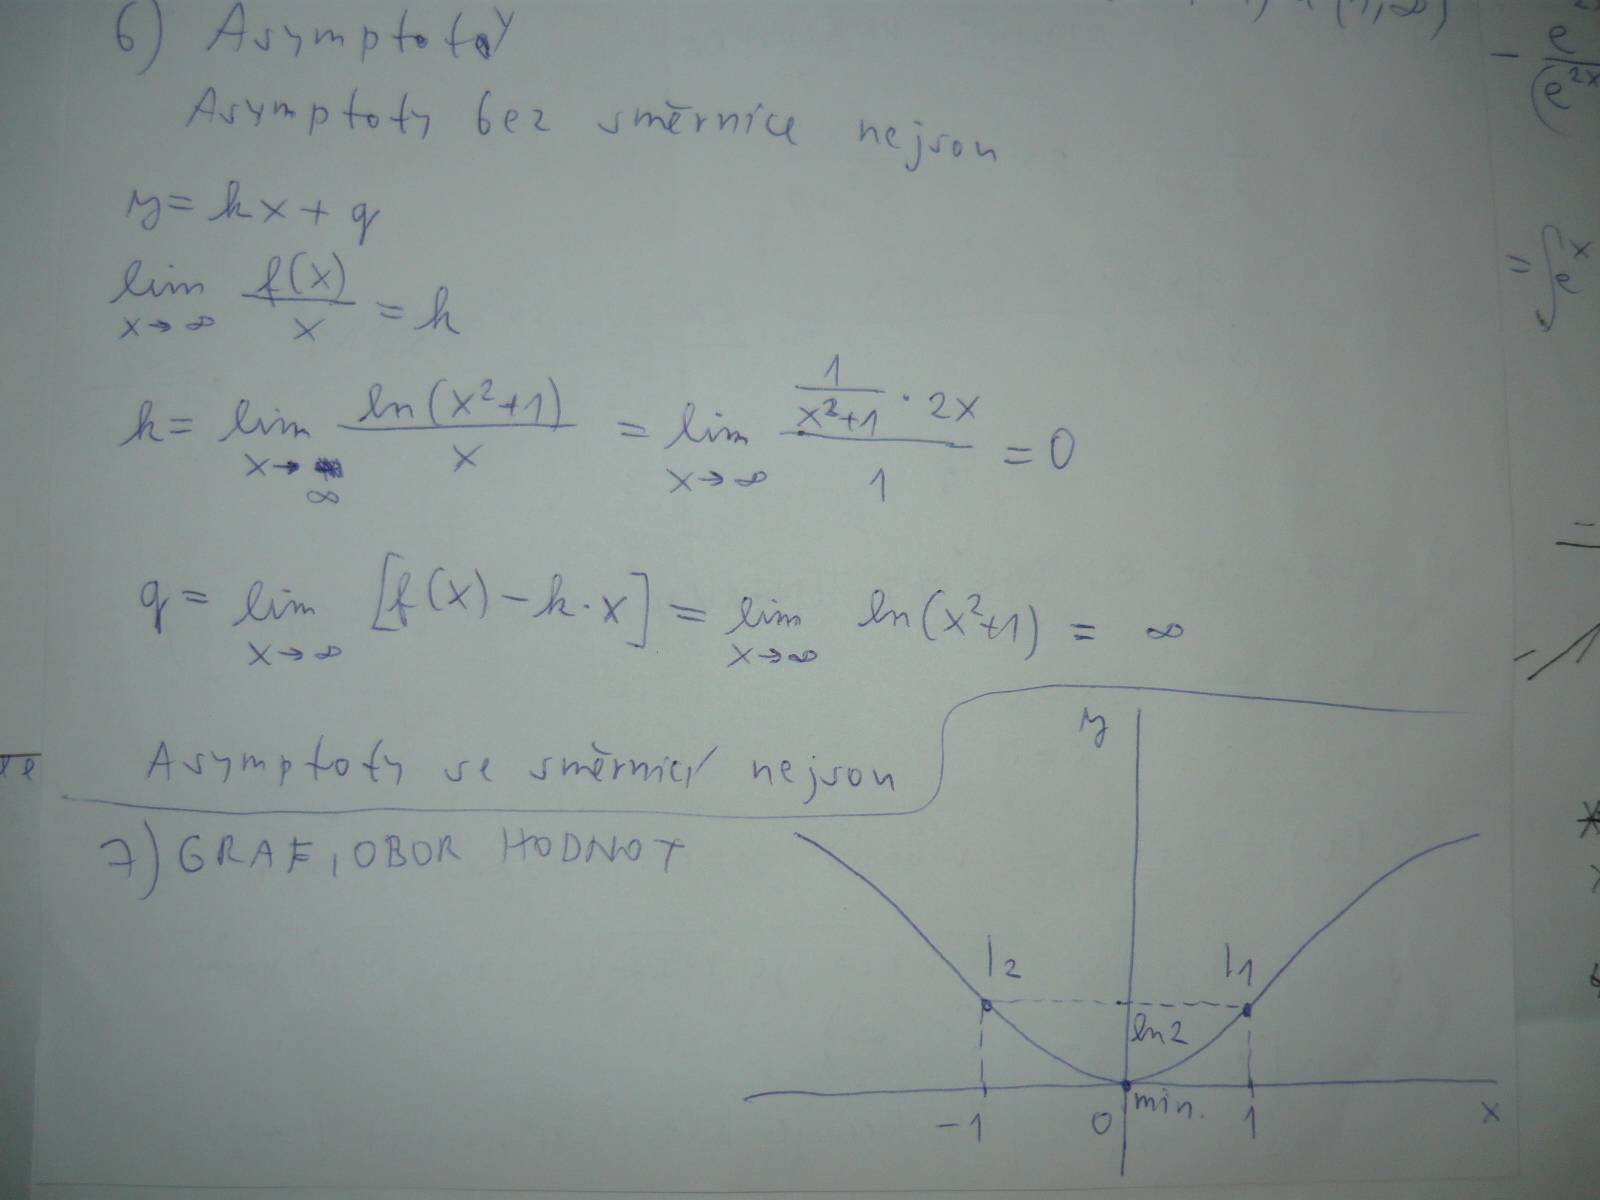 6) Asymptoty
Asymptoty bez směrnice nejsou
y = kx + q
lim x→∞ f(x)/x = k
k = lim x→∞ ln(x²+1)/x = lim x→∞ (1/(x²+1) · 2x)/1 = 0
q = lim x→∞ [f(x) - k·x] = lim x→∞ ln(x²+1) = ∞
Asymptoty se směrnicí nejsou
7) GRAF, OBOR HODNOT
y
I2 I1
ln2
min.
-1 0 1 x